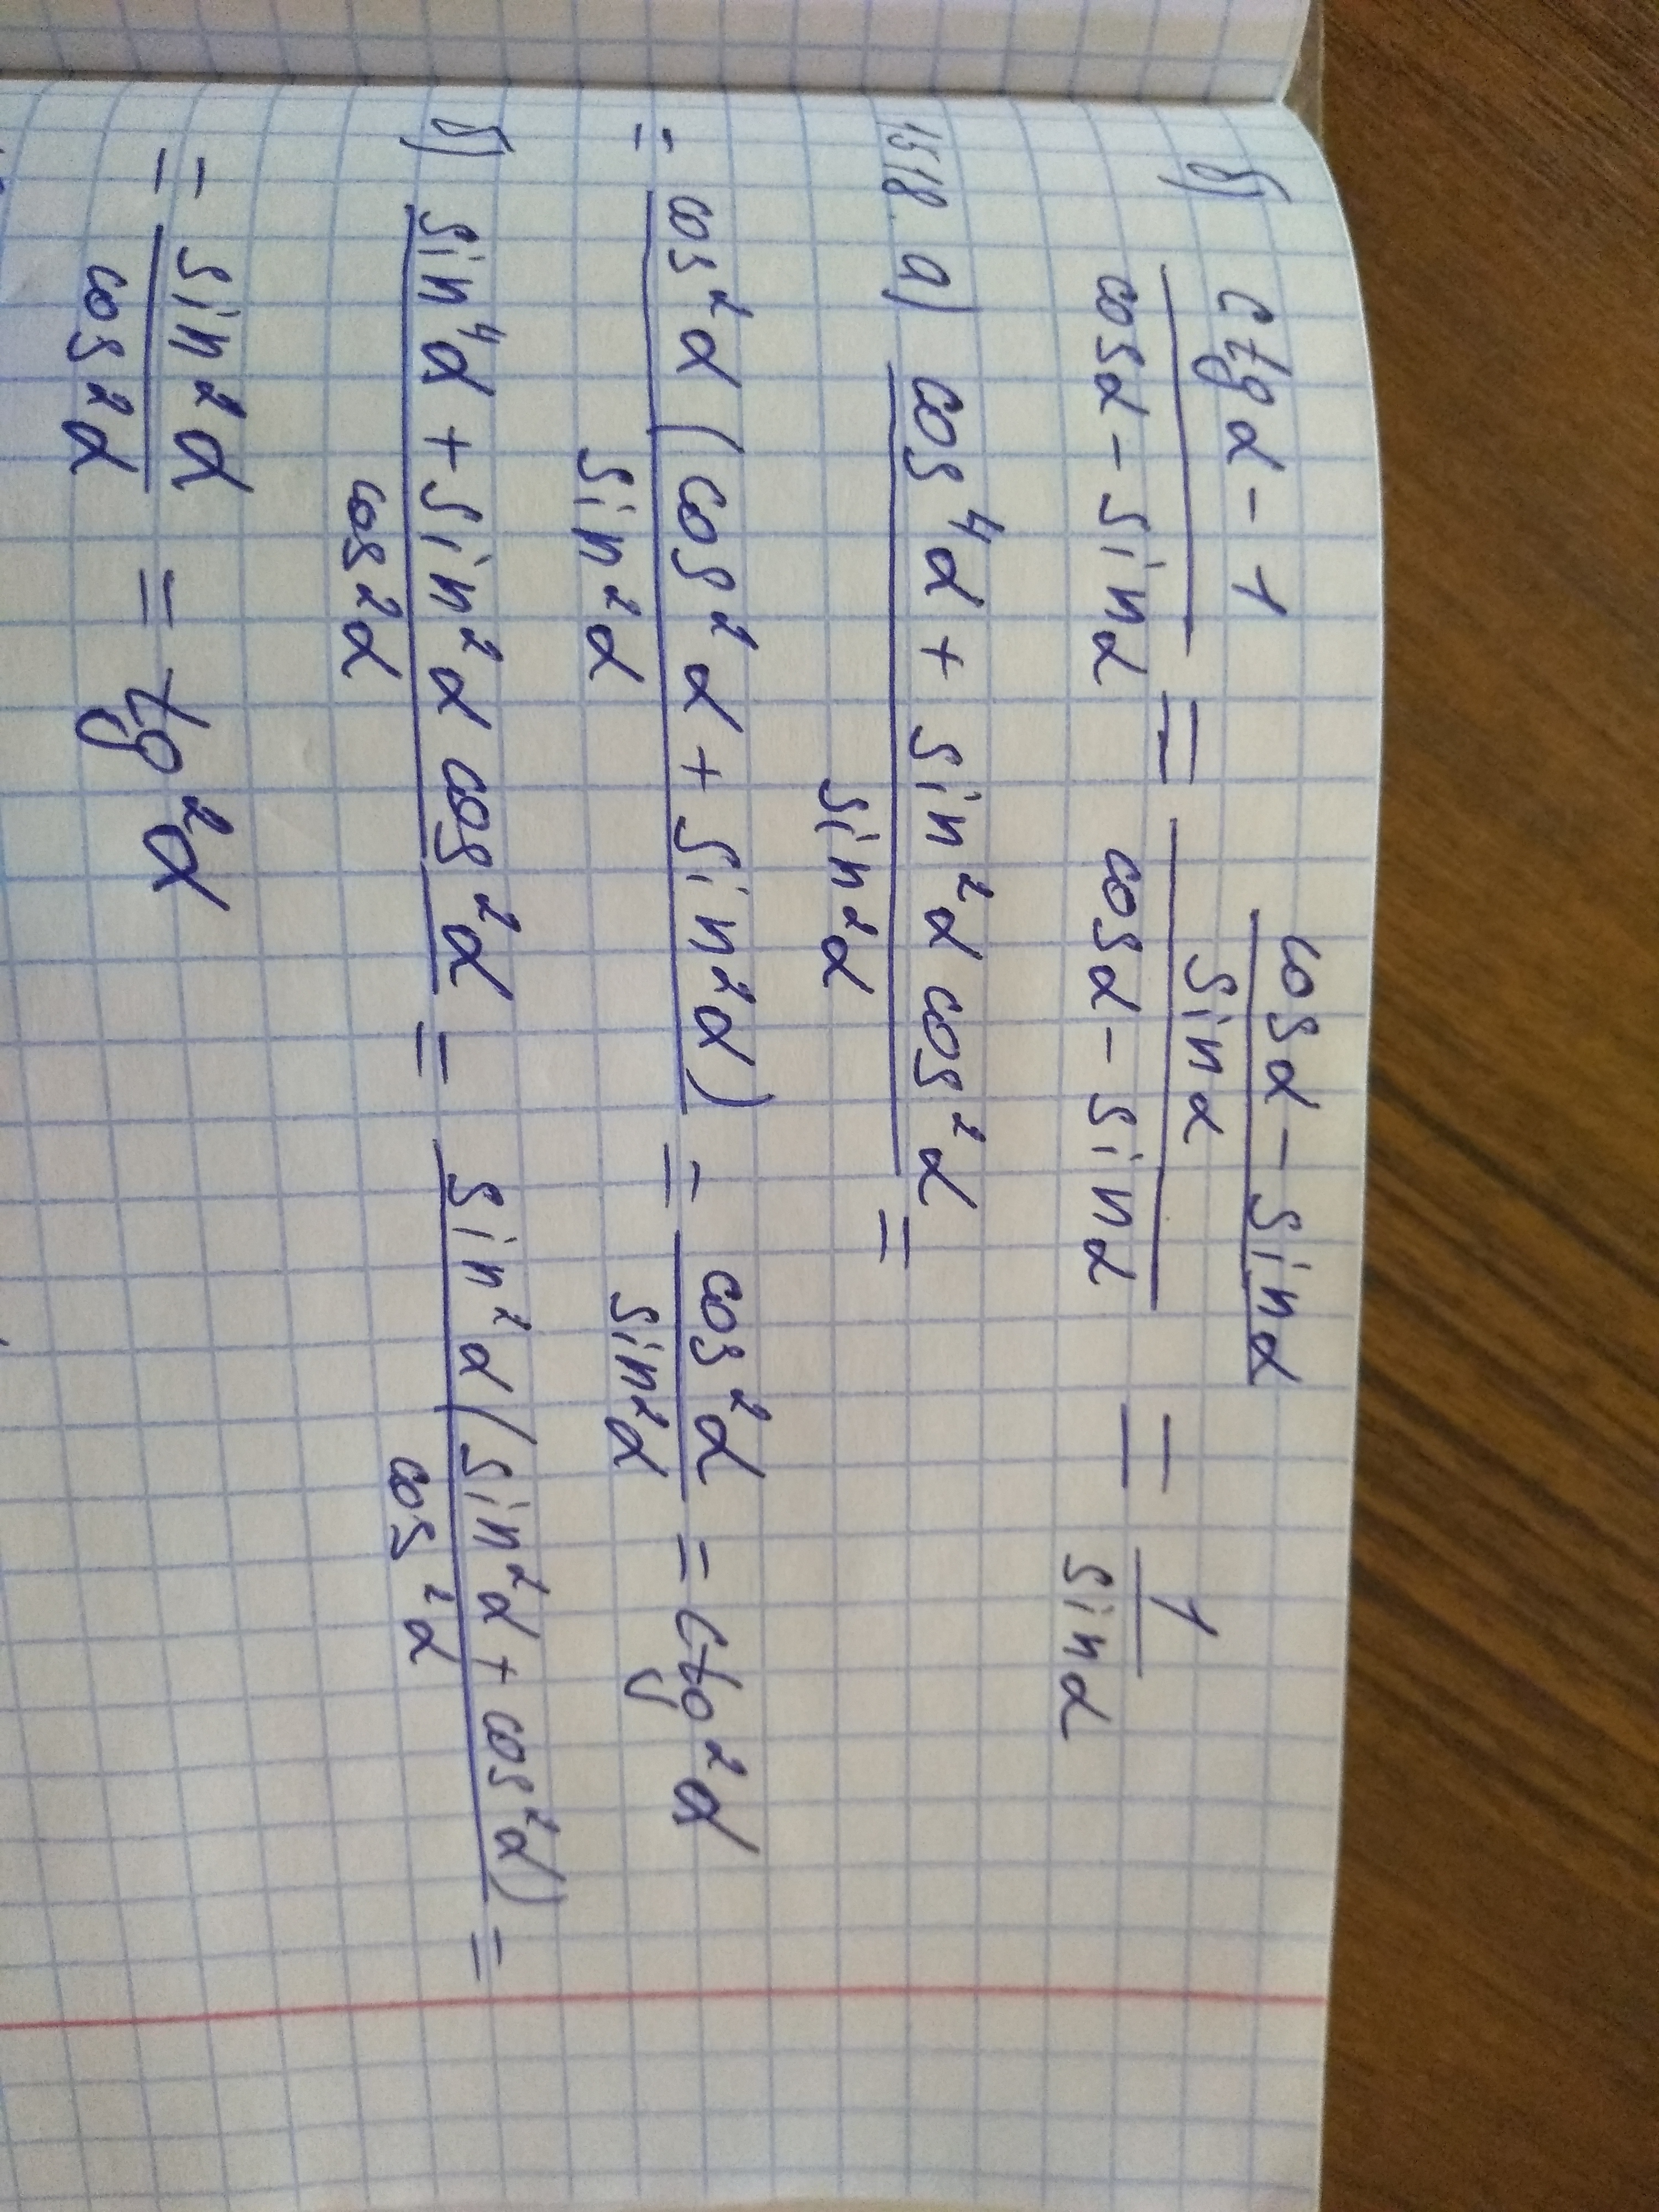 б) (ctgα - 1)/(cosα - sinα) = ((cosα - sinα)/sinα)/(cosα - sinα) = 1/sinα
1518. а) (cos⁴α + sin²α cos²α)/sin²α =
= cos²α (cos²α + sin²α)/sin²α = cos²α/sin²α = ctg²α
б) (sin⁴α + sin²α cos²α)/cos²α = sin²α (sin²α + cos²α)/cos²α =
= sin²α/cos²α = tg²α